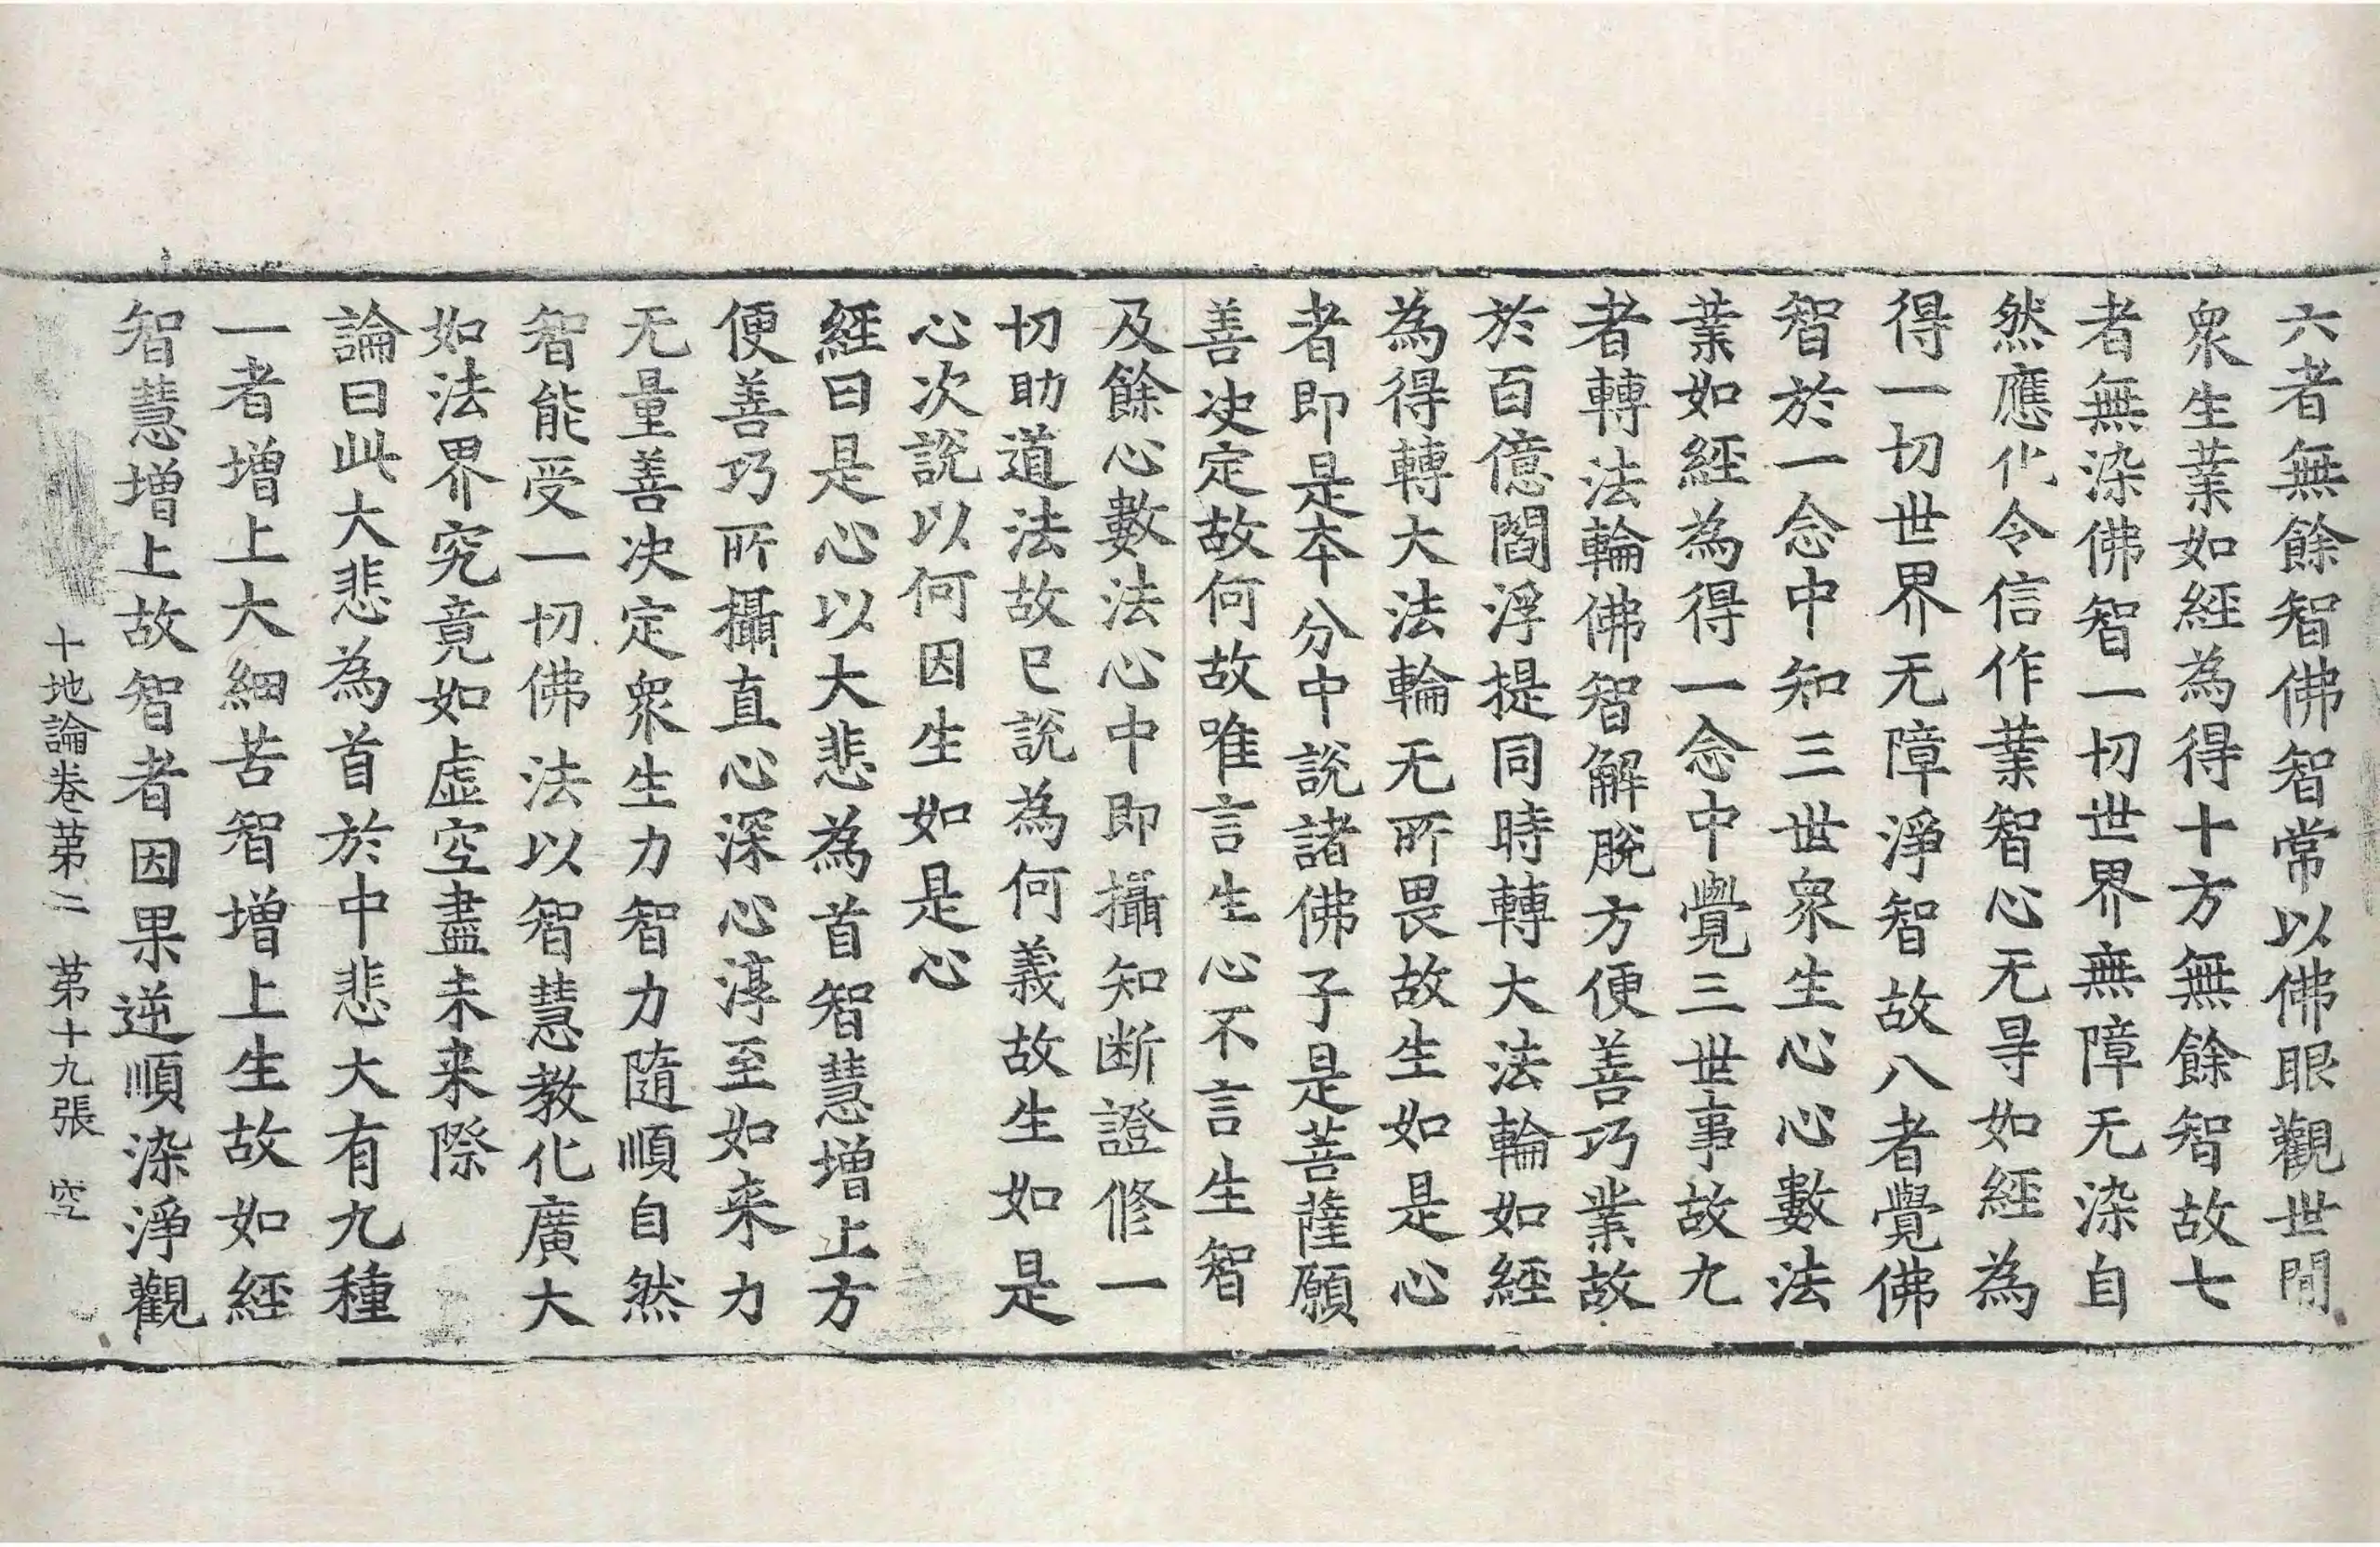 六者無餘智佛智常以佛眼觀世間
衆生業如經為得十方無餘智故七
者無染佛智一切世界無障无染自
然應化令信作業智心无㝵如經為
得一切世界无障淨智故八者覺佛
智於一念中知三世衆生心心數法
業如經為得一念中覺三世事故九
者轉法輪佛智解脫方便善巧業故
於百億閻浮提同時轉大法輪如經
為得轉大法輪无所畏故生如是心
者即是本分中說諸佛子是菩薩願
善决定故何故唯言生心不言生智
及餘心數法心中即攝知斷證修一
切助道法故已說為何義故生如是
心次說以何因生如是心
經曰是心以大悲為首智慧增上方
便善巧所攝直心深心淳至如来力
无量善决定衆生力智力隨順自然
智能受一切佛法以智慧教化廣大
如法界究竟如虛空盡未来際
論曰此大悲為首於中悲大有九種
一者增上大細苦智增上生故如經
智慧增上故智者因果逆順染淨觀
十地論卷第二 第十九張 空